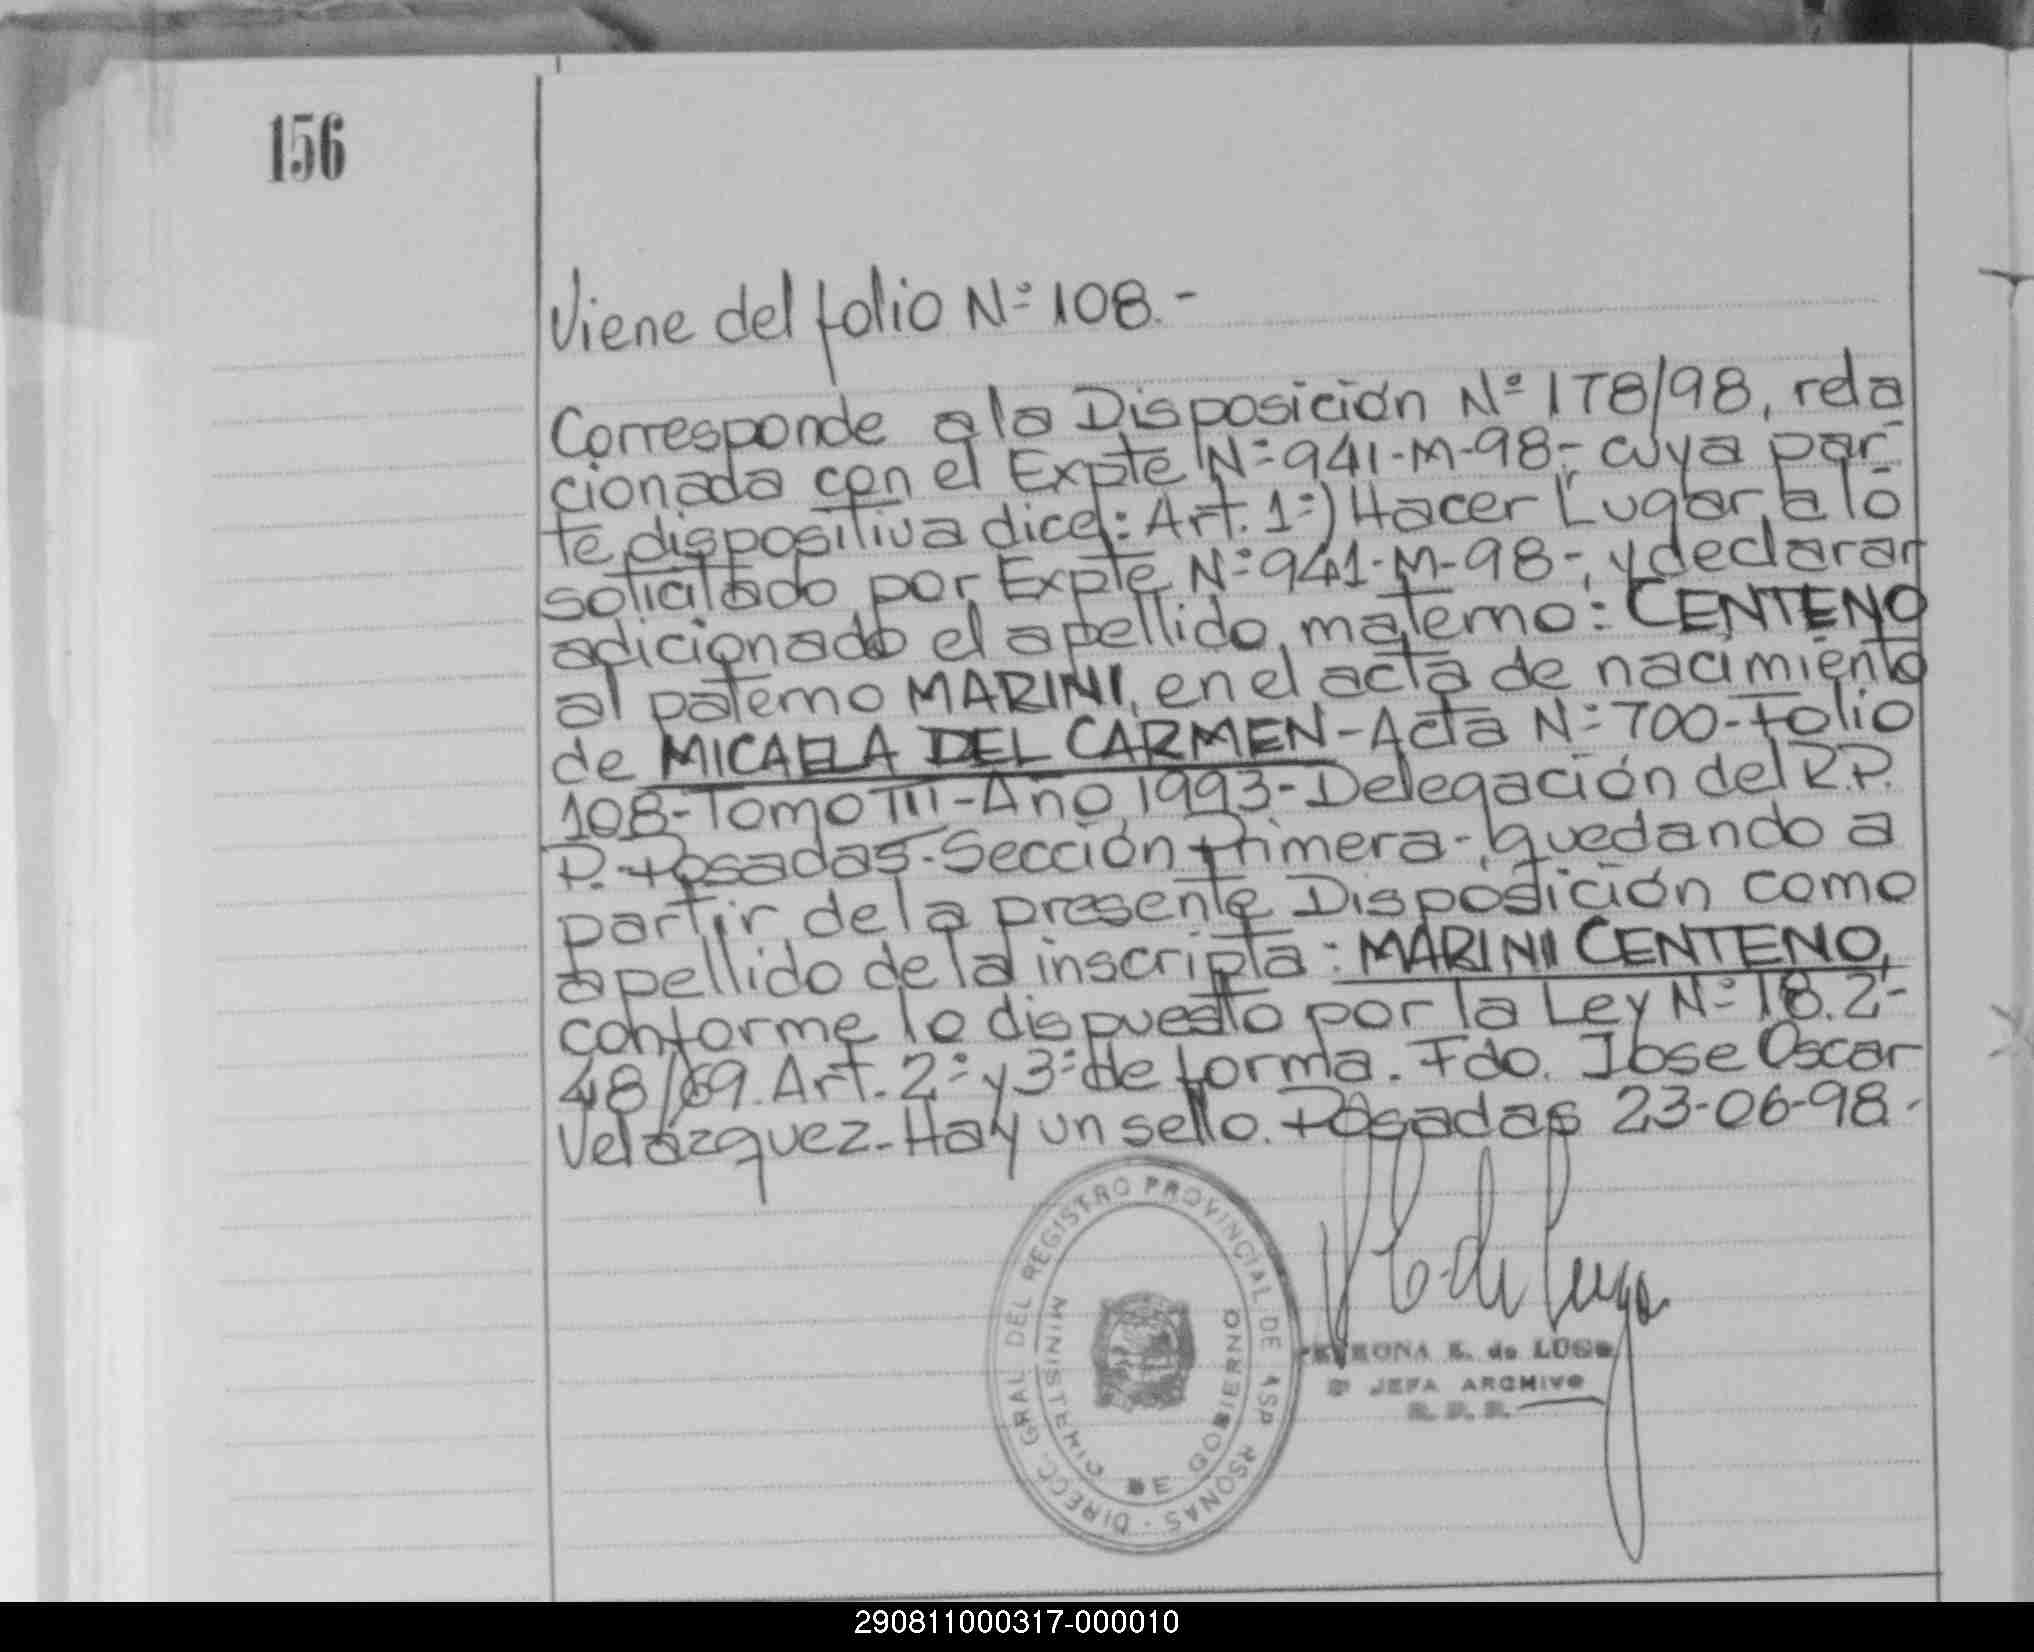 156
Viene del folio Nº 108.-
Corresponde a la Disposición Nº 178/98, rela
cionada con el Expte Nº 941-M-98-, cuya par-
te dispositiva dice: Art. 1º) Hacer Lugar a lo
solicitado por Expte Nº 941-M-98-, y declarar
adicionado el apellido materno: CENTENO
al paterno MARINI, en el acta de nacimiento
de MICAELA DEL CARMEN-Acta Nº 700-Folio
108-Tomo III-Año 1993-Delegación del R.P.
P.-Posadas-Sección Primera-, quedando a
partir de la presente Disposición como
apellido de la inscripta: MARINI CENTENO,
conforme lo dispuesto por la Ley Nº 18.2-
48/69. Art. 2º y 3º de forma. Fdo. Jose Oscar
Velázquez-Hay un sello. Posadas 23-06-98.-
DIRECC. GRAL DEL REGISTRO PROVINCIAL DE RSONAS
MINISTERIO DE GOBIERNO
de LUGO
JEFA ARCHIVO
R. P. P.
290811000317-000010